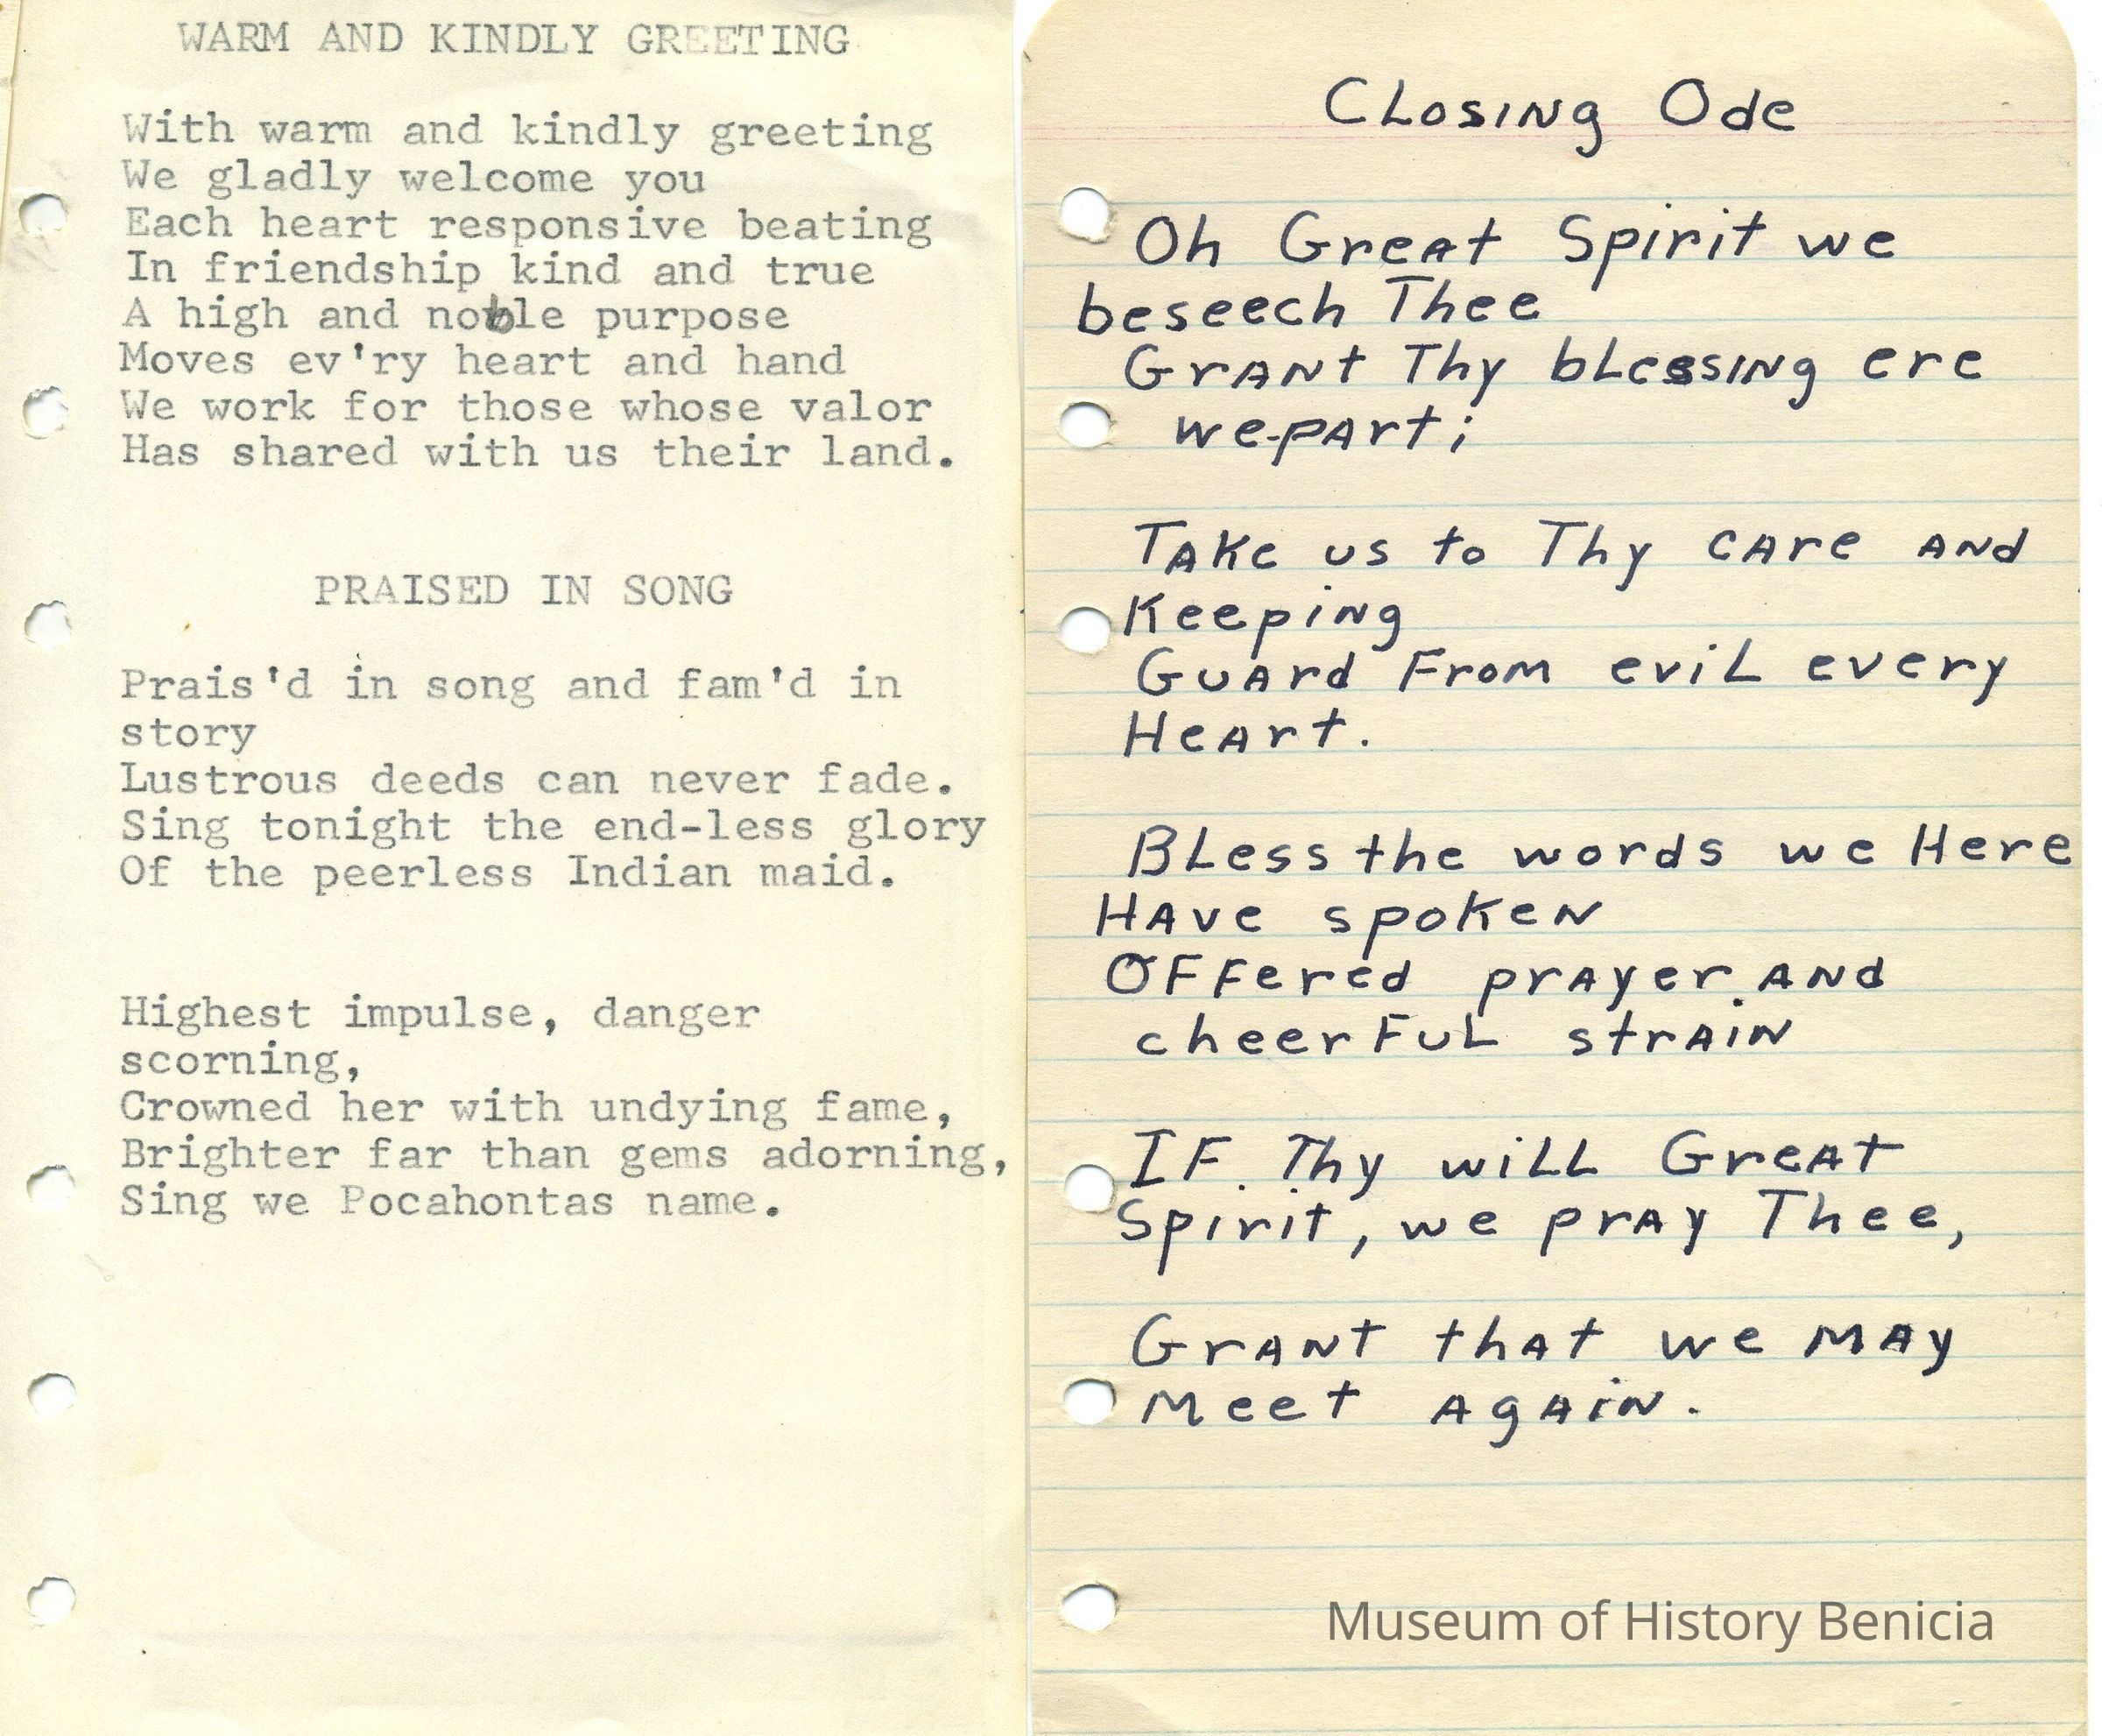 WARM AND KINDLY GREETING
With warm and kindly greeting
We gladly welcome you
Each heart responsive beating
In friendship kind and true
A high and noble purpose
Moves ev'ry heart and hand
We work for those whose valor
Has shared with us their land.
PRAISED IN SONG
Prais'd in song and fam'd in
story
Lustrous deeds can never fade.
Sing tonight the end-less glory
Of the peerless Indian maid.
Highest impulse, danger
scorning,
Crowned her with undying fame,
Brighter far than gems adorning,
Sing we Pocahontas name.
Closing Ode
Oh Great Spirit we
beseech Thee
Grant Thy blessing ere
we-part;
Take us to Thy care and
Keeping
Guard From evil every
Heart.
Bless the words we Here
Have spoken
Offered prayer and
cheerful strain
If Thy will Great
Spirit, we pray Thee,
Grant that we may
Meet again.
Museum of History Benicia